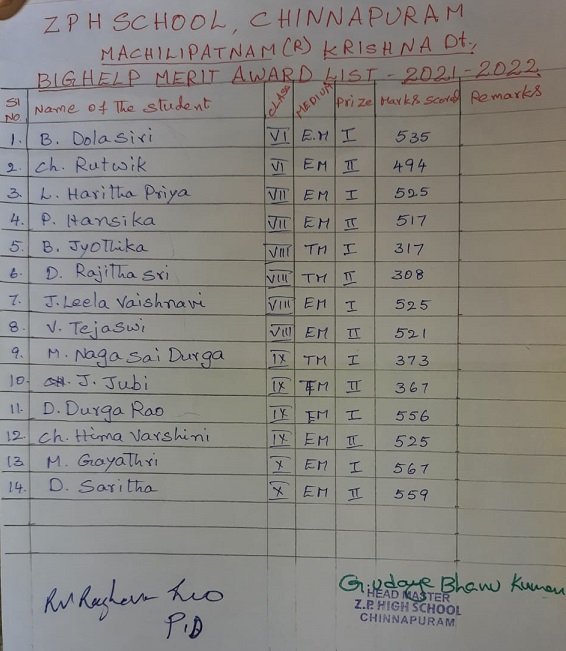 Z P H SCHOOL, CHINNAPURAM
MACHILIPATNAM (R) KRISHNA Dt.,
BIGHELP MERIT AWARD LIST - 2021-2022
Sl No. Name of the student CLASS MEDIUM Prize Marks Scored Remarks
1. B. Dola Siri VI E.M I 535
2. Ch. Rutwik VI EM II 494
3. L. Haritha Priya VII EM I 525
4. P. Hansika VII EM II 517
5. B. Jyothika VIII TM I 317
6. D. Rajitha Sri VIII TM II 308
7. J. Leela Vaishnavi VIII EM I 525
8. V. Tejaswi VIII EM II 521
9. M. Naga Sai Durga IX TM I 373
10. J. Jubi IX TM II 367
11. D. Durga Rao IX EM I 556
12. Ch. Hima Varshini IX EM II 525
13. M. Gayathri X EM I 567
14. D. Saritha X EM II 559
G. Udaya Bhanu Kumari
HEAD MASTER
Z.P. HIGH SCHOOL
CHINNAPURAM
P.D